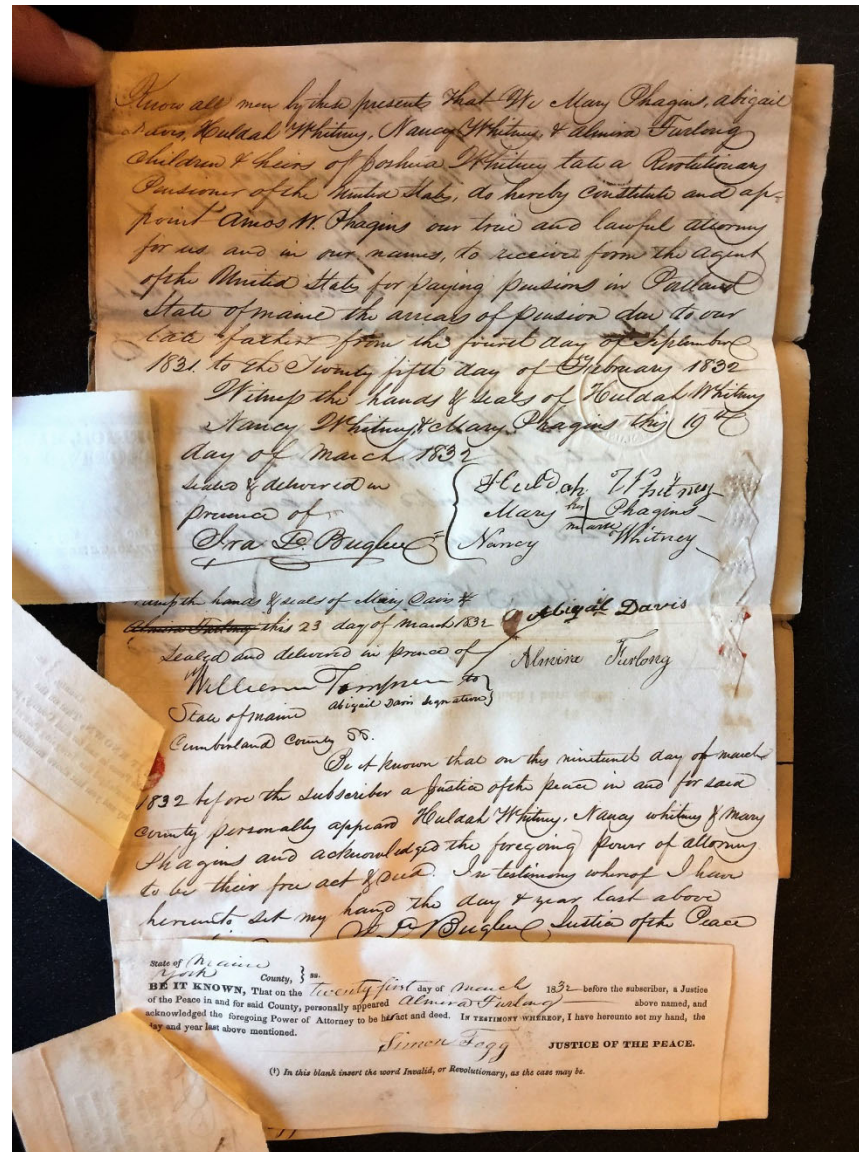 Know all men by these presents that We Mary Phagins, abigail
Davis, Huldah Whitney, Nancy Whitney, & almira Furlong
children & heirs of Joshua Whitney late a Revolutionary
Pensioner of the United States, do hereby constitute and ap=
point Amos W. Phagins our true and lawful attorney
for us and in our names, to receive form the agent
of the United States for paying pensions in Portland
State of maine the arreas of pension due to our
late father from the fourth day of September
1831. to the Twenty fifth day of February 1832
Witness the hands & seals of Huldah Whitney
Nancy Whitney & Mary Phagins this 19th
day of March 1832
sealed & delivered in
presence of
Huldah Whitney
Mary her mark Phagins
Nancy Whitney
hands & seals of Mary Davis &
Almira Furlong this 23 day of March 1832
Abigail Davis
Sealed and delivered in presence of
Almira Furlong
William to
Abigail Davis signature
State of maine
Cumberland County SS.
Be it known that on this nineteenth day of march
1832 before the subscriber a Justice of the peace in and for said
county personally appeard Huldah Whitney, Nancy whitney & Mary
Phagins and acknowledged the foregoing Power of attorney
to be their free act & deed. In testimony whereof I have
hereunto set my hand the day & year last above
Justice of the Peace
State of Maine
York County, } ss.
BE IT KNOWN, That on the twenty first day of March 1832 before the subscriber, a Justice
of the Peace in and for said County, personally appeared Almira Furlong above named, and
acknowledged the foregoing Power of Attorney to be her act and deed. IN TESTIMONY WHEREOF, I have hereunto set my hand, the
day and year last above mentioned.
Simon Fogg JUSTICE OF THE PEACE.
(†) In this blank insert the word Invalid, or Revolutionary, as the case may be.